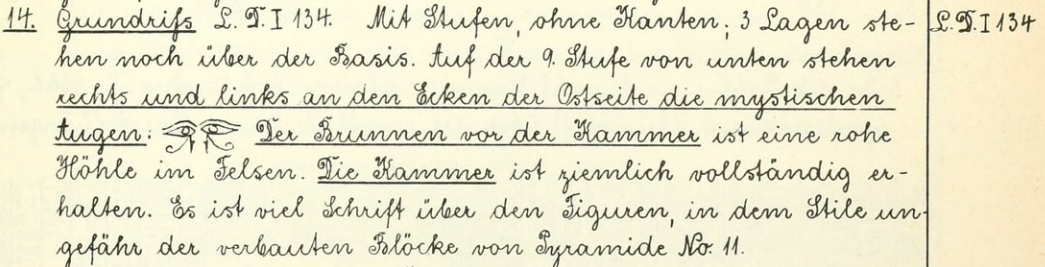 14. Grundriſs L. D. I 134. Mit Stufen, ohne Kanten; 3 Lagen ste- L. D. I 134
hen noch über der Basis. Auf der 9. Stufe von unten stehen
rechts und links an den Ecken der Ostseite die mystischen
Augen: 𓂀𓂀 Der Brunnen vor der Kammer ist eine rohe
Höhle im Felsen. Die Kammer ist ziemlich vollständig er-
halten. Es ist viel Schrift über den Figuren, in dem Stile un-
gefähr der verbauten Blöcke von Pyramide No. 11.